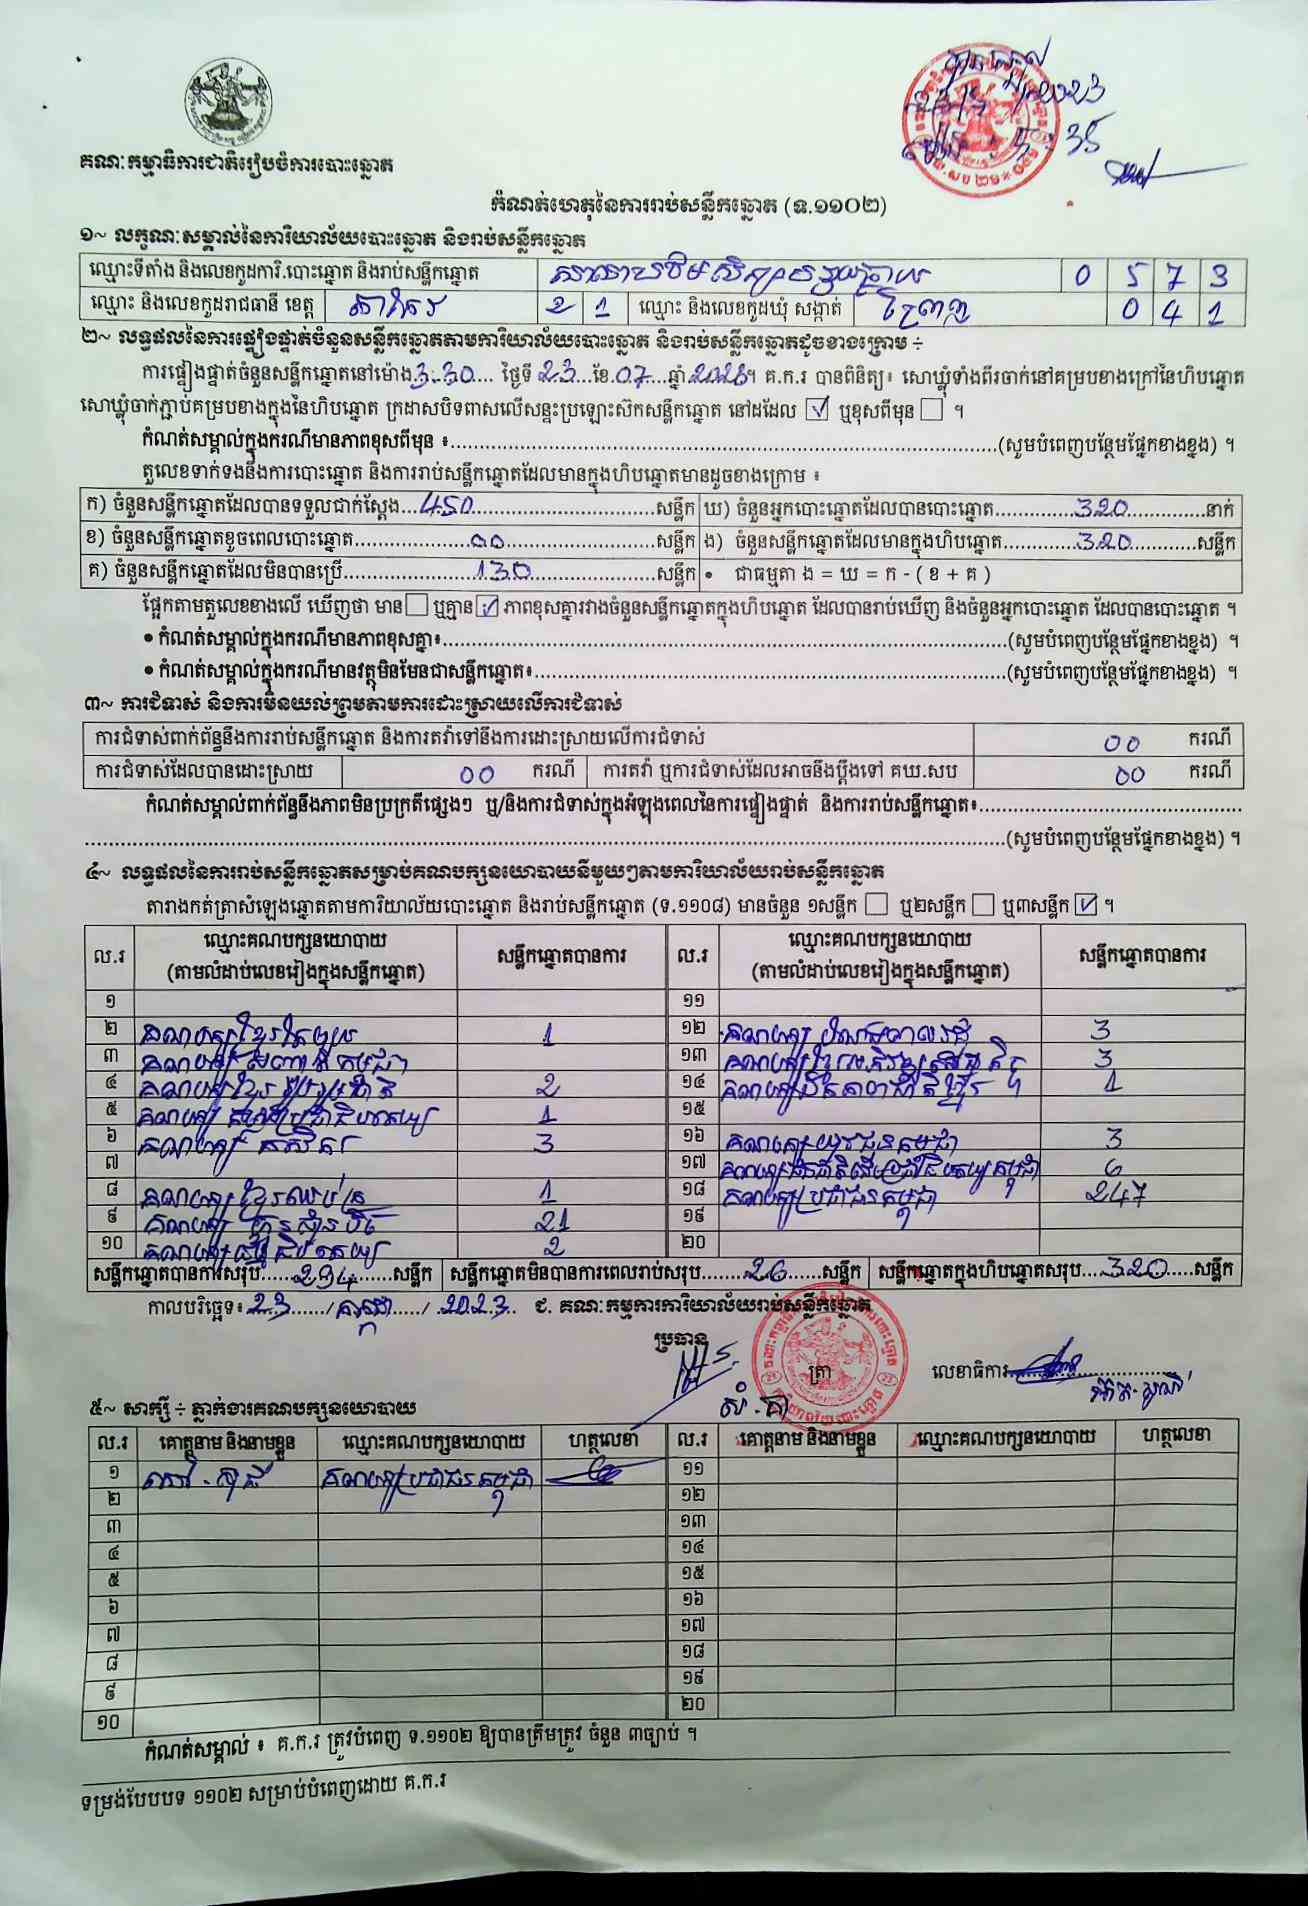 គណៈកម្មាធិការជាតិរៀបចំការបោះឆ្នោត
2023
5:35
កំណត់ហេតុនៃការរាប់សន្លឹកឆ្នោត (ទ.១១០២)
១~ លក្ខណៈសម្គាល់នៃការិយាល័យបោះឆ្នោត និងរាប់សន្លឹកឆ្នោត
ឈ្មោះទីតាំង និងលេខកូដការិ.បោះឆ្នោត និងរាប់សន្លឹកឆ្នោត 0 5 7 3
ឈ្មោះ និងលេខកូដរាជធានី ខេត្ត តាកែវ 2 1 ឈ្មោះ និងលេខកូដឃុំ សង្កាត់ 0 4 1
២~ លទ្ធផលនៃការផ្ទៀងផ្ទាត់ចំនួនសន្លឹកឆ្នោតតាមការិយាល័យបោះឆ្នោត និងរាប់សន្លឹកឆ្នោតដូចខាងក្រោម ÷
ការផ្ទៀងផ្ទាត់ចំនួនសន្លឹកឆ្នោតនៅម៉ោង 3:30 ថ្ងៃទី 23 ខែ 07 ឆ្នាំ 2023។ គ.ក.រ បានពិនិត្យ៖ សោឃ្លុំទាំងពីរចាក់នៅគម្របខាងក្រៅនៃហិបឆ្នោត
សោឃ្លុំចាក់ភ្ជាប់គម្របខាងក្នុងនៃហិបឆ្នោត ក្រដាសបិទពាសលើសន្ទះប្រឡោះស៊កសន្លឹកឆ្នោត នៅដដែល ☑ ឬខុសពីមុន ☐ ។
កំណត់សម្គាល់ក្នុងករណីមានភាពខុសពីមុន ៖ (សូមបំពេញបន្ថែមផ្នែកខាងខ្នង) ។
តួលេខទាក់ទងនឹងការបោះឆ្នោត និងការរាប់សន្លឹកឆ្នោតដែលមានក្នុងហិបឆ្នោតមានដូចខាងក្រោម ៖
ក) ចំនួនសន្លឹកឆ្នោតដែលបានទទួលជាក់ស្តែង 450 សន្លឹក ឃ) ចំនួនអ្នកបោះឆ្នោតដែលបានបោះឆ្នោត 320 នាក់
ខ) ចំនួនសន្លឹកឆ្នោតខូចពេលបោះឆ្នោត 00 សន្លឹក ង) ចំនួនសន្លឹកឆ្នោតដែលមានក្នុងហិបឆ្នោត 320 សន្លឹក
គ) ចំនួនសន្លឹកឆ្នោតដែលមិនបានប្រើ 130 សន្លឹក • ជាធម្មតា ង = ឃ = ក - ( ខ + គ )
ផ្អែកតាមតួលេខខាងលើ ឃើញថា មាន ☐ ឬគ្មាន ☑ ភាពខុសគ្នារវាងចំនួនសន្លឹកឆ្នោតក្នុងហិបឆ្នោត ដែលបានរាប់ឃើញ និងចំនួនអ្នកបោះឆ្នោត ដែលបានបោះឆ្នោត ។
• កំណត់សម្គាល់ក្នុងករណីមានភាពខុសគ្នា៖ (សូមបំពេញបន្ថែមផ្នែកខាងខ្នង) ។
• កំណត់សម្គាល់ក្នុងករណីមានវត្ថុមិនមែនជាសន្លឹកឆ្នោត៖ (សូមបំពេញបន្ថែមផ្នែកខាងខ្នង) ។
៣~ ការជំទាស់ និងការមិនយល់ព្រមតាមការដោះស្រាយលើការជំទាស់
ការជំទាស់ពាក់ព័ន្ធនឹងការរាប់សន្លឹកឆ្នោត និងការតវ៉ាទៅនឹងការដោះស្រាយលើការជំទាស់ 00 ករណី
ការជំទាស់ដែលបានដោះស្រាយ 00 ករណី ការតវ៉ា ឬការជំទាស់ដែលអាចនឹងប្តឹងទៅ គឃ.សប 00 ករណី
កំណត់សម្គាល់ពាក់ព័ន្ធនឹងភាពមិនប្រក្រតីផ្សេងៗ ឬ/និងការជំទាស់ក្នុងអំឡុងពេលនៃការផ្ទៀងផ្ទាត់ និងការរាប់សន្លឹកឆ្នោត៖
(សូមបំពេញបន្ថែមផ្នែកខាងខ្នង) ។
៤~ លទ្ធផលនៃការរាប់សន្លឹកឆ្នោតសម្រាប់គណបក្សនយោបាយនីមួយៗតាមការិយាល័យរាប់សន្លឹកឆ្នោត
តារាងកត់ត្រាសំឡេងឆ្នោតតាមការិយាល័យបោះឆ្នោត និងរាប់សន្លឹកឆ្នោត (ទ.១១០៨) មានចំនួន ១សន្លឹក ☐ ឬ២សន្លឹក ☐ ឬ៣សន្លឹក ☑ ។
ល.រ ឈ្មោះគណបក្សនយោបាយ (តាមលំដាប់លេខរៀងក្នុងសន្លឹកឆ្នោត) សន្លឹកឆ្នោតបានការ ល.រ ឈ្មោះគណបក្សនយោបាយ (តាមលំដាប់លេខរៀងក្នុងសន្លឹកឆ្នោត) សន្លឹកឆ្នោតបានការ
១ ១១
២ គណបក្ស 1 ១២ គណបក្ស 3
៣ គណបក្ស ១៣ គណបក្ស 3
៤ គណបក្សខ្មែររួបរួមជាតិ 2 ១៤ គណបក្ស 1
៥ គណបក្ស 1 ១៥
៦ គណបក្ស កសិករ 3 ១៦ គណបក្សយុវជនកម្ពុជា 3
៧ ១៧ គណបក្ស 6
៨ គណបក្ស 1 ១៨ គណបក្សប្រជាជនកម្ពុជា 247
៩ គណបក្ស ហ៊្វុនស៊ិនប៉ិច 21 ១៩
១០ គណបក្ស 2 ២០
សន្លឹកឆ្នោតបានការសរុប 294 សន្លឹក សន្លឹកឆ្នោតមិនបានការពេលរាប់សរុប 26 សន្លឹក សន្លឹកឆ្នោតក្នុងហិបឆ្នោតសរុប 320 សន្លឹក
កាលបរិច្ឆេទ៖ 23 / កក្កដា / 2023 ជ. គណៈកម្មការការិយាល័យរាប់សន្លឹកឆ្នោត
ប្រធាន
ត្រា លេខាធិការ
៥~ សាក្សី ÷ ភ្នាក់ងារគណបក្សនយោបាយ
ល.រ គោត្តនាម និងនាមខ្លួន ឈ្មោះគណបក្សនយោបាយ ហត្ថលេខា ល.រ គោត្តនាម និងនាមខ្លួន ឈ្មោះគណបក្សនយោបាយ ហត្ថលេខា
១ គណបក្សប្រជាជនកម្ពុជា ១១
២ ១២
៣ ១៣
៤ ១៤
៥ ១៥
៦ ១៦
៧ ១៧
៨ ១៨
៩ ១៩
១០ ២០
កំណត់សម្គាល់ ៖ គ.ក.រ ត្រូវបំពេញ ទ.១១០២ ឱ្យបានត្រឹមត្រូវ ចំនួន ៣ច្បាប់ ។
ទម្រង់បែបបទ ១១០២ សម្រាប់បំពេញដោយ គ.ក.រ